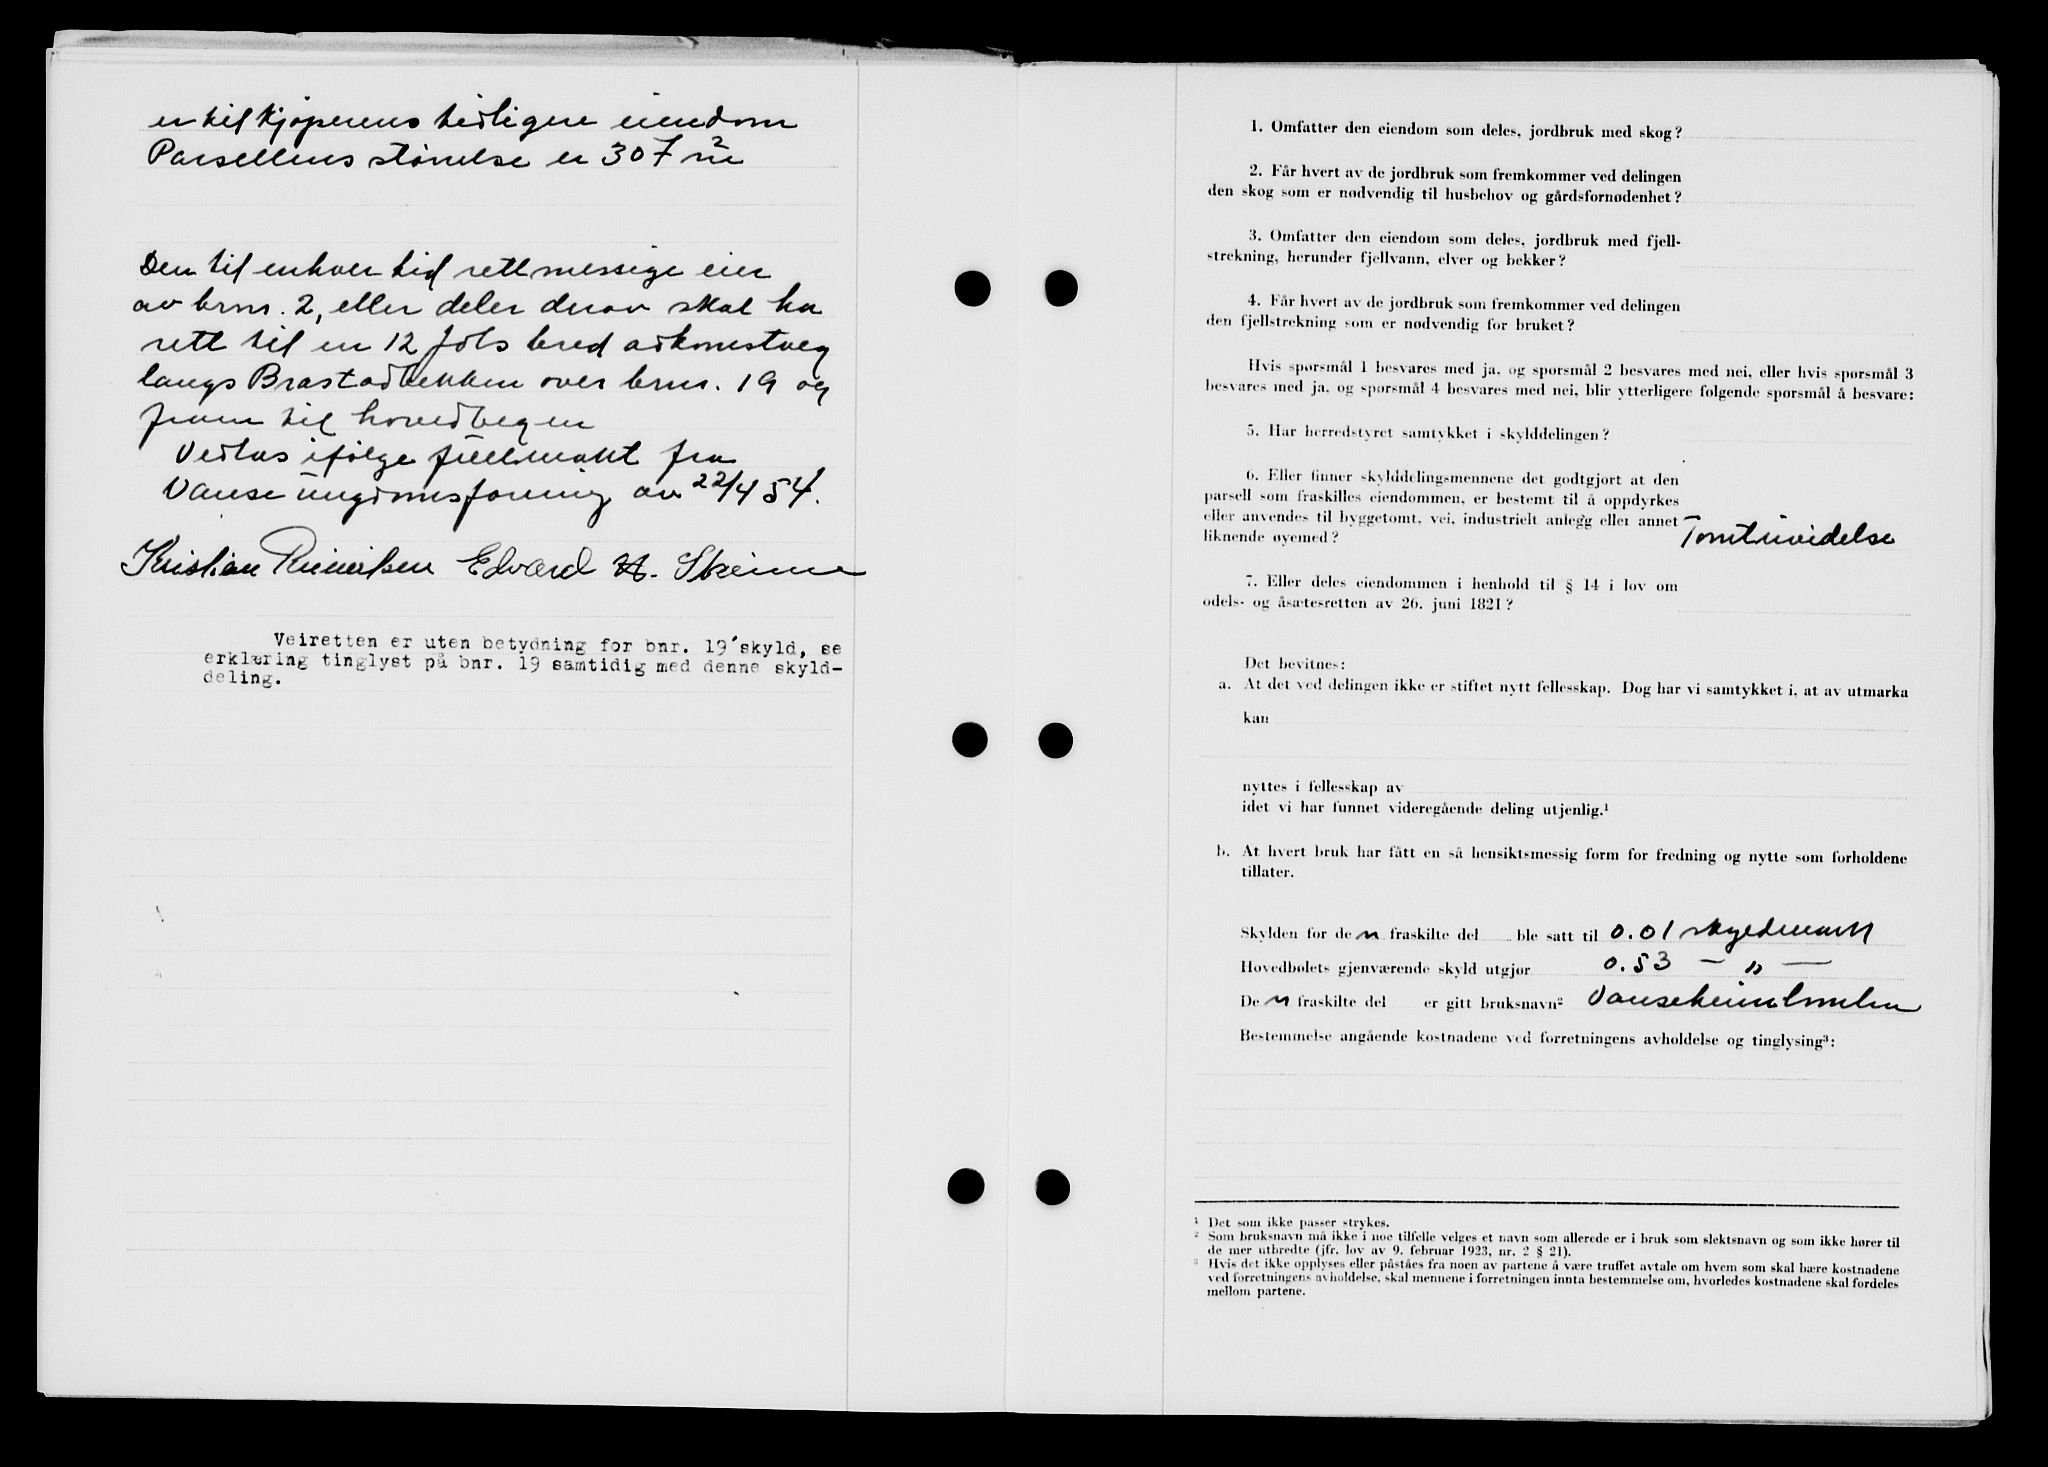 er til kjøperens tidligere eiendom
Parsellens størrelse er 307 m²
Den til enhver tid rettmessige eier
av brnr. 2, eller deler derav skal ha
rett til en 12 fots bred adkomstveg
langs Brastadbekken over brnr. 19 og
fram til hovedvegen
Vedtas ifølge fullmakt fra
Vanse ungdomsforning av 22/4 54.
Kristian Edvard H.
Veiretten er uten betydning for bnr. 19's skyld, se
erklæring tinglyst på bnr. 19 samtidig med denne skyld-
deling.
1. Omfatter den eiendom som deles, jordbruk med skog?
2. Får hvert av de jordbruk som fremkommer ved delingen
den skog som er nødvendig til husbehov og gårdsfornødenhet?
3. Omfatter den eiendom som deles, jordbruk med fjell-
strekning, herunder fjellvann, elver og bekker?
4. Får hvert av de jordbruk som fremkommer ved delingen
den fjellstrekning som er nødvendig for bruket?
Hvis spørsmål 1 besvares med ja, og spørsmål 2 besvares med nei, eller hvis spørsmål 3
besvares med ja, og spørsmål 4 besvares med nei, blir ytterligere følgende spørsmål å besvare:
5. Har herredstyret samtykket i skylddelingen?
6. Eller finner skylddelingsmennene det godtgjort at den
parsell som fraskilles eiendommen, er bestemt til å oppdyrkes
eller anvendes til byggetomt, vei, industrielt anlegg eller annet
liknende øyemed? Tomtutvidelse
7. Eller deles eiendommen i henhold til § 14 i lov om
odels- og åsætesretten av 26. juni 1821?
Det bevitnes:
a. At det ved delingen ikke er stiftet nytt fellesskap. Dog har vi samtykket i, at av utmarka
kan
nyttes i fellesskap av
idet vi har funnet videregående deling utjenlig.¹
b. At hvert bruk har fått en så hensiktsmessig form for fredning og nytte som forholdene
tillater.
Skylden for den fraskilte del ble satt til 0.01 skyldmark
Hovedbølets gjenværende skyld utgjør 0.53 — " —
Den fraskilte del er gitt bruksnavn²
Bestemmelse angående kostnadene ved forretningens avholdelse og tinglysing³:
¹ Det som ikke passer strykes.
² Som bruksnavn må ikke i noe tilfelle velges et navn som allerede er i bruk som slektsnavn og som ikke hører til
de mer utbredte (jfr. lov av 9. februar 1923, nr. 2 § 21).
³ Hvis det ikke opplyses eller påståes fra noen av partene å være truffet avtale om hvem som skal bære kostnadene
ved forretningens avholdelse, skal mennene i forretningen innta bestemmelse om, hvorledes kostnadene skal fordeles
mellom partene.